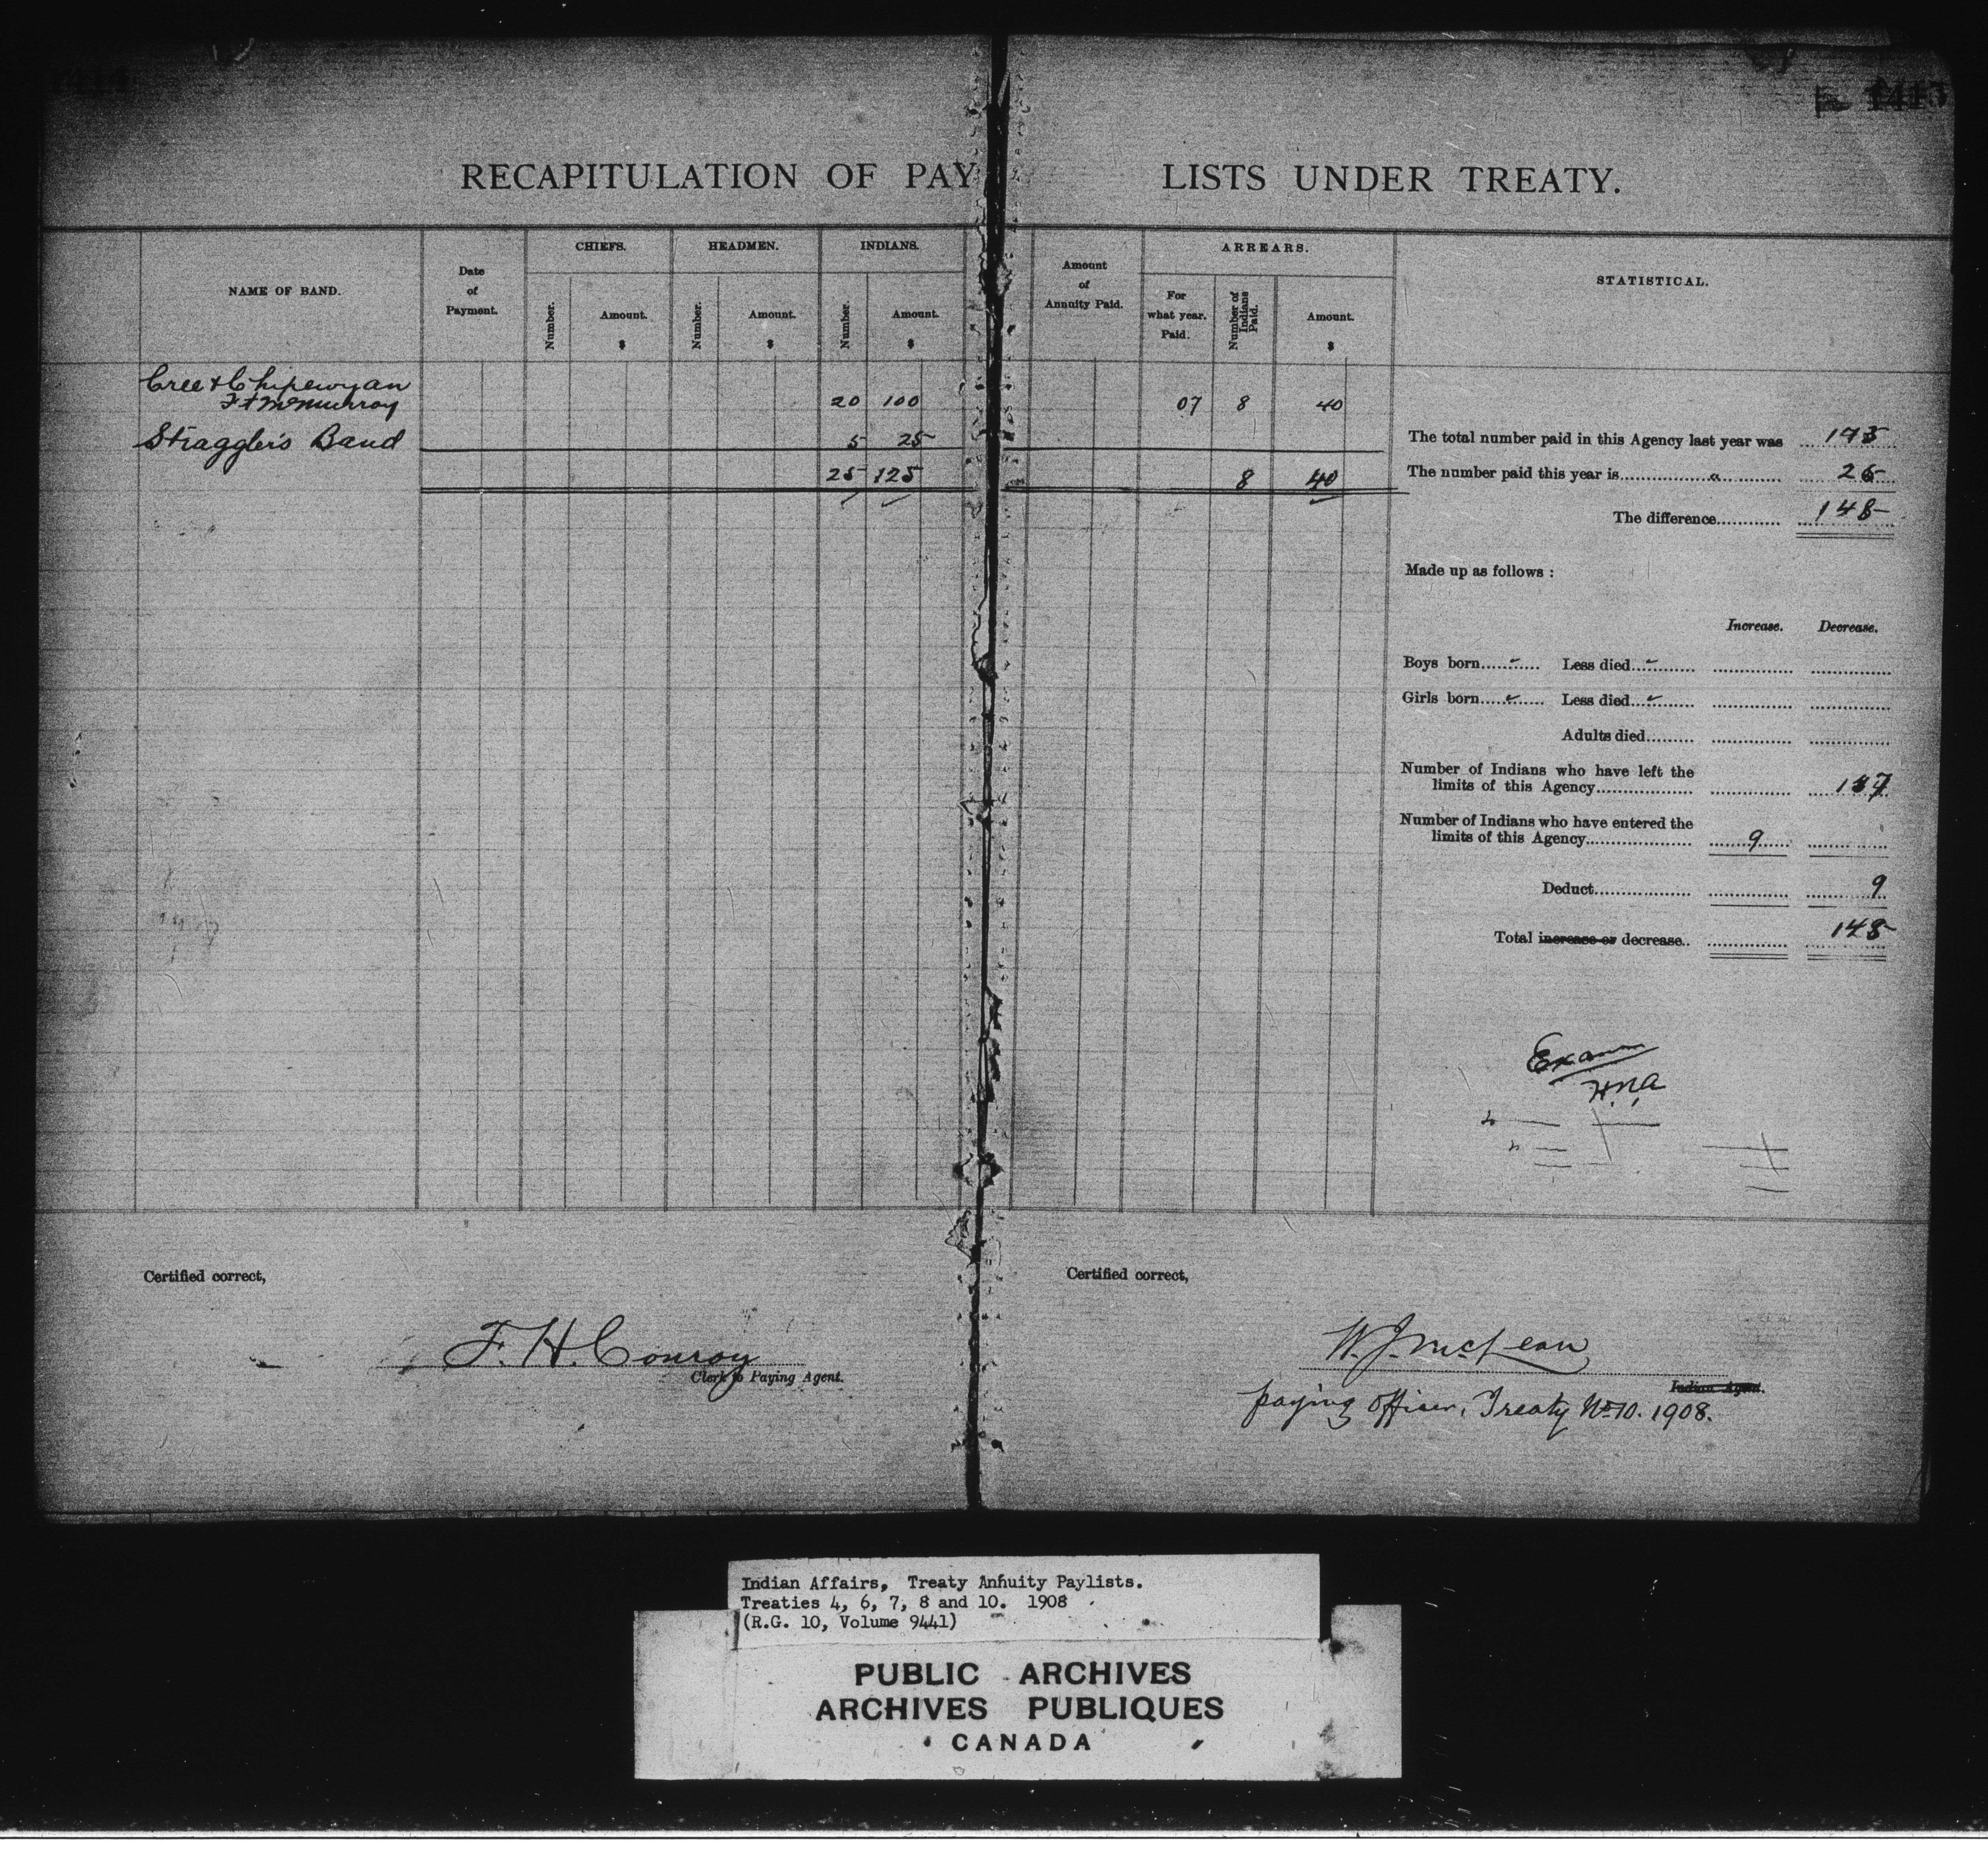 1415
RECAPITULATION OF PAY LISTS UNDER TREATY.
NAME OF BAND.
Date of Payment.
CHIEFS.
Number.
Amount. $
HEADMEN.
Number.
Amount. $
INDIANS.
Number.
Amount. $
Amount of Annuity Paid.
ARREARS.
For what year. Paid.
Number of Indians Paid.
Amount. $
STATISTICAL.
Cree & Chipewyan
Ft McMurray 20 100 07 8 40
Straggler's Band 5 25
25 125 8 40
The total number paid in this Agency last year was 173
The number paid this year is 25
The difference 148
Made up as follows :
Increase. Decrease.
Boys born Less died
Girls born Less died
Adults died
Number of Indians who have left the
limits of this Agency 157
Number of Indians who have entered the
limits of this Agency 9
Deduct 9
Total increase or decrease.. 148
Exam
H.N.A
Certified correct,
F. H. Conroy
Clerk to Paying Agent.
Certified correct,
W. J. McLean
Indian Agent.
paying officer, Treaty No 10. 1908.
Indian Affairs, Treaty Annuity Paylists.
Treaties 4, 6, 7, 8 and 10. 1908
(R.G. 10, Volume 9441)
PUBLIC ARCHIVES
ARCHIVES PUBLIQUES
CANADA